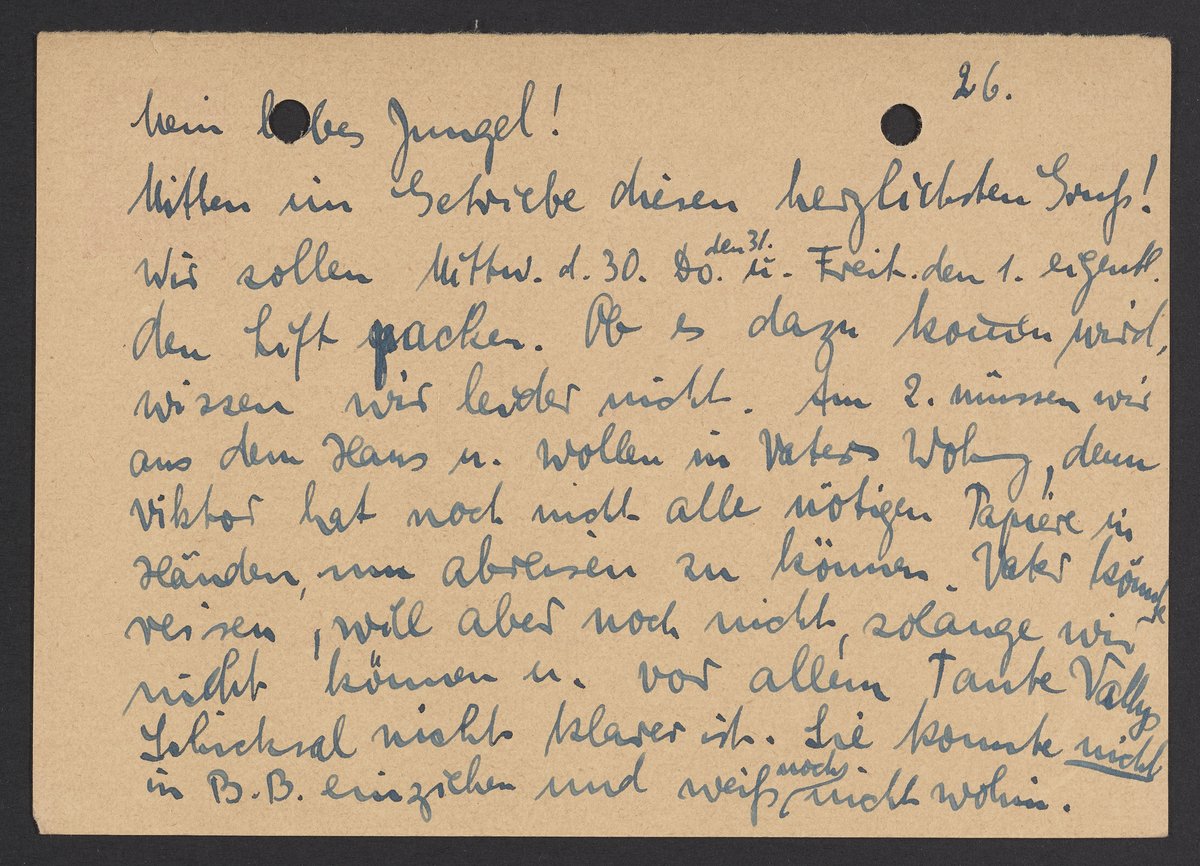 26.
Mein liebes Jungel!
Mitten im Getriebe diesen herzlichsten Gruß!
Wir sollen Mittw. d. 30. Do. den 31. u. Freit. den 1. eigentl.
den Lift packen. Ob es dazu komm wird,
wissen wir leider nicht. Am 2. müssen wir
aus dem Haus u. wollen in Vaters Wohng, denn
Viktor hat noch nicht alle nötigen Papiere in
Händen, um abreisen zu können. Vater könnte
reisen, will aber noch nicht, solange wir
nicht können u. vor allem Tante Vallys
Schicksal nicht klarer ist. Sie konnte nicht
in B.B. einziehen und weiß noch nicht wohin.